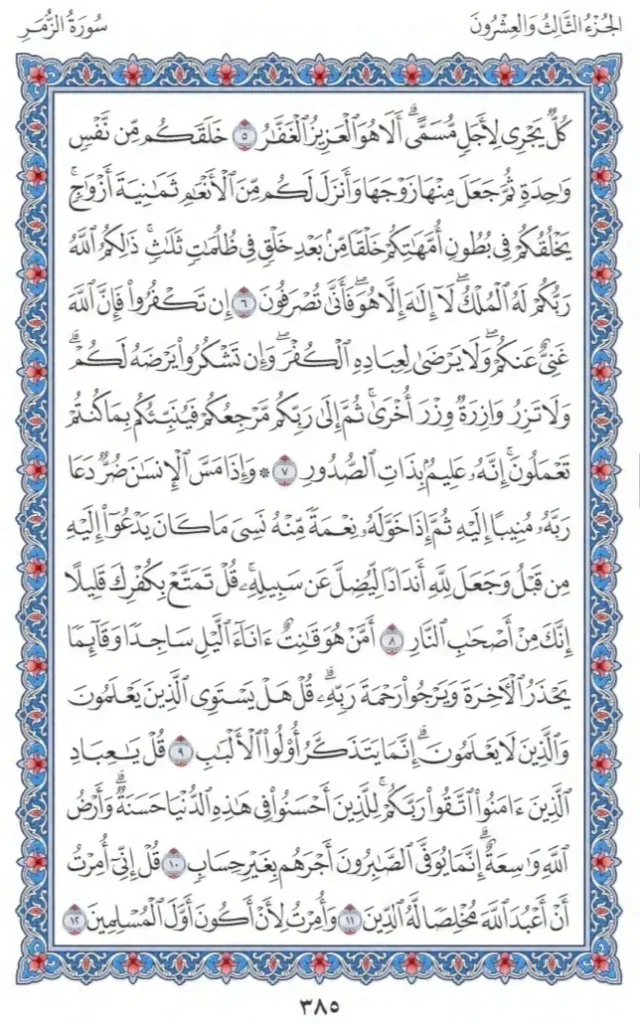 الجُزْءُ الثَّالِثُ وَالعِشْرُونَ
سُورَةُ الزُّمَرِ
كُلٌّ يَجْرِى لِأَجَلٍ مُّسَمًّى ۗ أَلَا هُوَ الْعَزِيزُ الْغَفَّٰرُ ٥ خَلَقَكُم مِّن نَّفْسٍ
وَٰحِدَةٍ ثُمَّ جَعَلَ مِنْهَا زَوْجَهَا وَأَنزَلَ لَكُم مِّنَ الْأَنْعَٰمِ ثَمَٰنِيَةَ أَزْوَٰجٍ ۚ
يَخْلُقُكُمْ فِى بُطُونِ أُمَّهَٰتِكُمْ خَلْقًا مِّنۢ بَعْدِ خَلْقٍ فِى ظُلُمَٰتٍ ثَلَٰثٍ ۚ ذَٰلِكُمُ اللَّهُ
رَبُّكُمْ لَهُ الْمُلْكُ ۖ لَآ إِلَٰهَ إِلَّا هُوَ ۖ فَأَنَّىٰ تُصْرَفُونَ ٦ إِن تَكْفُرُوا۟ فَإِنَّ اللَّهَ
غَنِىٌّ عَنكُمْ ۖ وَلَا يَرْضَىٰ لِعِبَادِهِ الْكُفْرَ ۖ وَإِن تَشْكُرُوا۟ يَرْضَهُ لَكُمْ ۗ
وَلَا تَزِرُ وَازِرَةٌ وِزْرَ أُخْرَىٰ ۚ ثُمَّ إِلَىٰ رَبِّكُم مَّرْجِعُكُمْ فَيُنَبِّئُكُم بِمَا كُنتُمْ
تَعْمَلُونَ ۚ إِنَّهُۥ عَلِيمٌۢ بِذَاتِ الصُّدُورِ ٧ ۞ وَإِذَا مَسَّ الْإِنسَٰنَ ضُرٌّ دَعَا
رَبَّهُۥ مُنِيبًا إِلَيْهِ ثُمَّ إِذَا خَوَّلَهُۥ نِعْمَةً مِّنْهُ نَسِىَ مَا كَانَ يَدْعُوٓا۟ إِلَيْهِ
مِن قَبْلُ وَجَعَلَ لِلَّهِ أَندَادًا لِّيُضِلَّ عَن سَبِيلِهِۦ ۚ قُلْ تَمَتَّعْ بِكُفْرِكَ قَلِيلًا
إِنَّكَ مِنْ أَصْحَٰبِ النَّارِ ٨ أَمَّنْ هُوَ قَٰنِتٌ ءَانَآءَ الَّيْلِ سَاجِدًا وَقَآئِمًا
يَحْذَرُ الْءَاخِرَةَ وَيَرْجُوا۟ رَحْمَةَ رَبِّهِۦ ۗ قُلْ هَلْ يَسْتَوِى الَّذِينَ يَعْلَمُونَ
وَالَّذِينَ لَا يَعْلَمُونَ ۗ إِنَّمَا يَتَذَكَّرُ أُو۟لُوا۟ الْأَلْبَٰبِ ٩ قُلْ يَٰعِبَادِ
الَّذِينَ ءَامَنُوا۟ اتَّقُوا۟ رَبَّكُمْ ۚ لِلَّذِينَ أَحْسَنُوا۟ فِى هَٰذِهِ الدُّنْيَا حَسَنَةٌ ۗ وَأَرْضُ
اللَّهِ وَٰسِعَةٌ ۗ إِنَّمَا يُوَفَّى الصَّٰبِرُونَ أَجْرَهُم بِغَيْرِ حِسَابٍ ١٠ قُلْ إِنِّىٓ أُمِرْتُ
أَنْ أَعْبُدَ اللَّهَ مُخْلِصًا لَّهُ الدِّينَ ١١ وَأُمِرْتُ لِأَنْ أَكُونَ أَوَّلَ الْمُسْلِمِينَ ١٢
٣٨٥